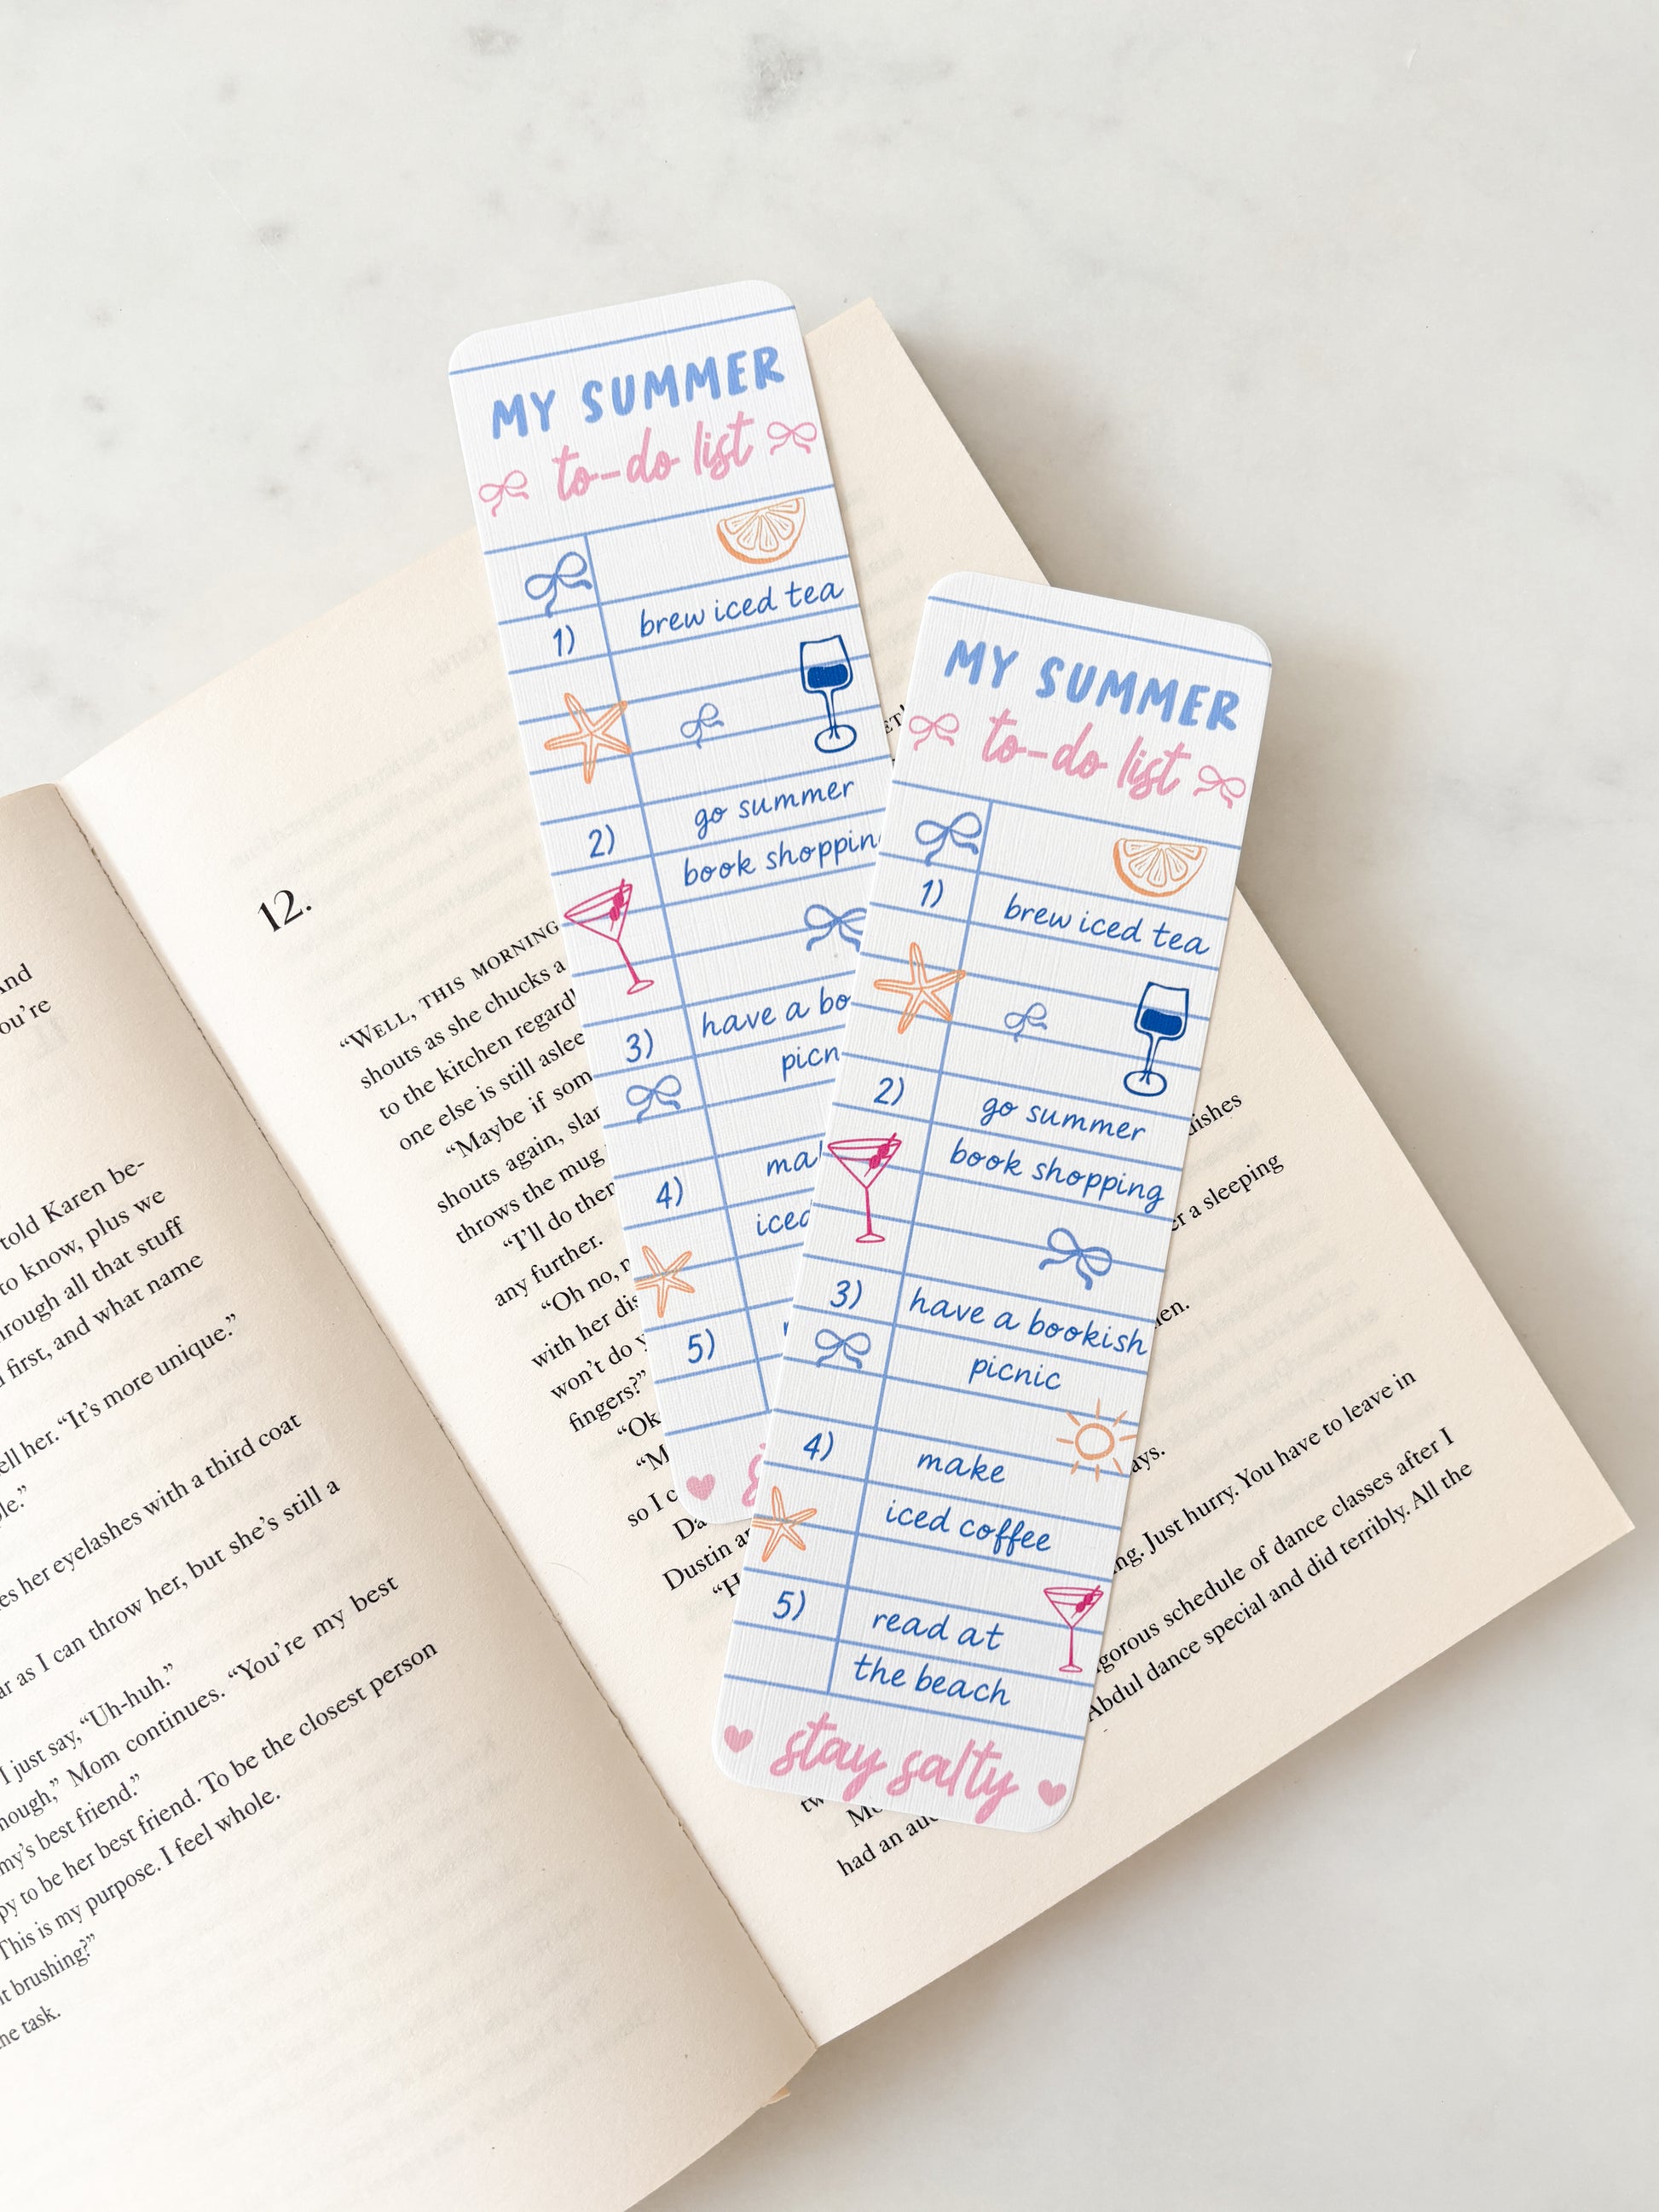 MY SUMMER
to-do list
1) brew iced tea
2) go summer
book shopping
3) have a
picnic
4)
iced
5)
MY SUMMER
to-do list
1) brew iced tea
2) go summer
book shopping
3) have a bookish
picnic
4) make
iced coffee
5) read at
the beach
stay salty
told Karen be-
to know, plus we
through all that stuff
first, and what name
tell her. “It’s more unique.”
her eyelashes with a third coat
as I can throw her, but she’s still a
I just say, “Uh-huh.”
Mom continues. “You’re my best
best friend.”
to be her best friend. To be the closest person
This is my purpose. I feel whole.
brushing?”
the task.
12.
“WELL, THIS MORNING
shouts as she chucks a
to the kitchen
one else is still
“Maybe if
shouts again,
throws the mug
“I’ll do
any further.
“Oh no,
with her
won’t do
fingers?”
so I
Dustin
dishes
a sleeping
Just hurry. You have to leave in
schedule of dance classes after I
Abdul dance special and did terribly. All the
had an